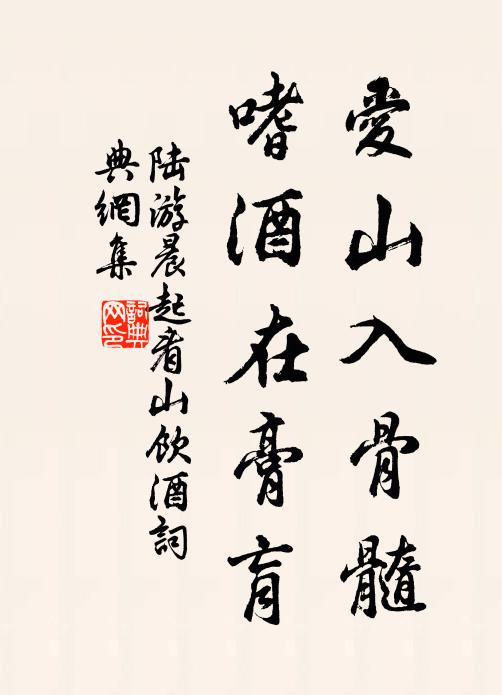 愛山入骨髓
嗜酒在膏肓
陆游晨起看山飲酒詞
典網集
詞典
网印